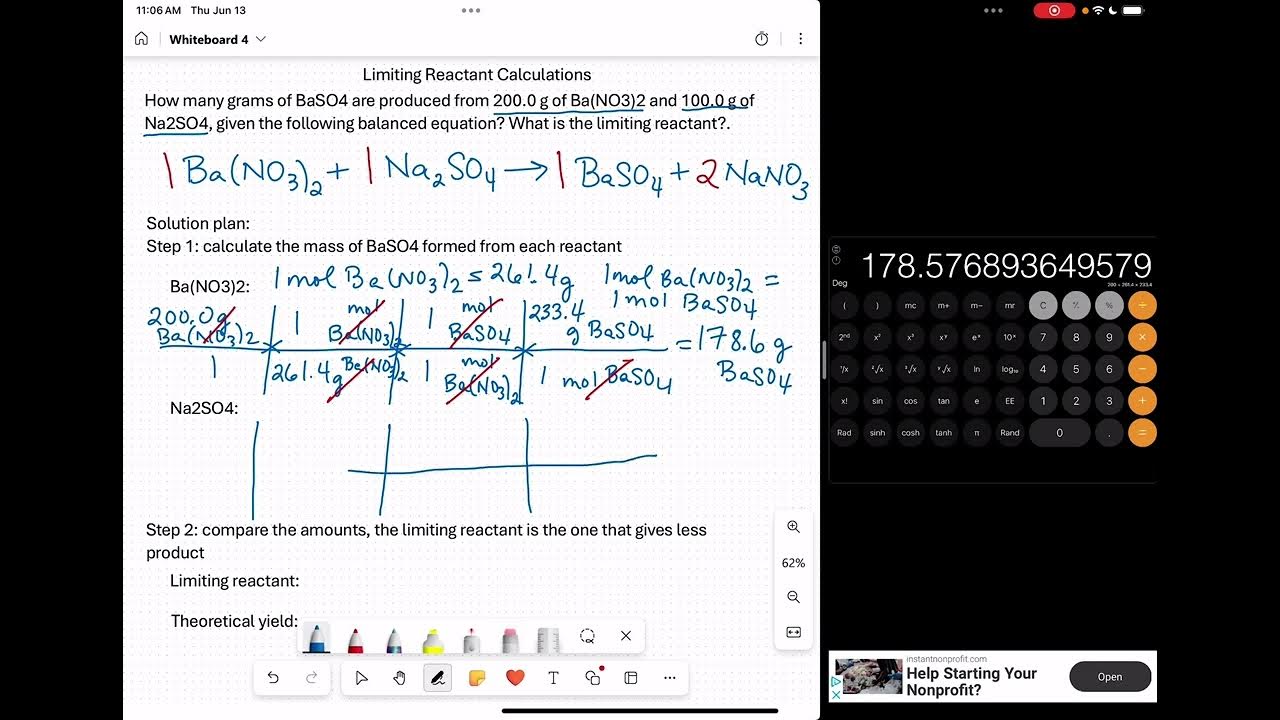 11:06 AM Thu Jun 13
Whiteboard 4
Limiting Reactant Calculations
How many grams of BaSO4 are produced from 200.0 g of Ba(NO3)2 and 100.0 g of
Na2SO4, given the following balanced equation? What is the limiting reactant?.
1 Ba(NO3)2 + 1 Na2SO4 → 1 BaSO4 + 2 NaNO3
Solution plan:
Step 1: calculate the mass of BaSO4 formed from each reactant
Ba(NO3)2:
1 mol Ba(NO3)2 = 261.4g
1mol Ba(NO3)2 =
1 mol BaSO4
200.0g
Ba(NO3)2
1 mol
Ba(NO3)2
1 mol
BaSO4
233.4
g BaSO4
= 178.6 g
BaSO4
1
261.4g Ba(NO3)2
1 mol
Ba(NO3)2
1 mol BaSO4
Na2SO4:
Step 2: compare the amounts, the limiting reactant is the one that gives less
product
Limiting reactant:
Theoretical yield:
62%
T
178.576893649579
Deg
200 ÷ 261.4 × 233.4
( ) mc m+ m− mr C % ÷
2ⁿᵈ x² x³ xʸ eˣ 10ˣ 7 8 9 ×
¹/x ²√x ³√x ʸ√x ln log₁₀ 4 5 6 −
x! sin cos tan e EE 1 2 3 +
Rad sinh cosh tanh π Rand 0 . =
instantnonprofit.com
Help Starting Your
Nonprofit?
Open